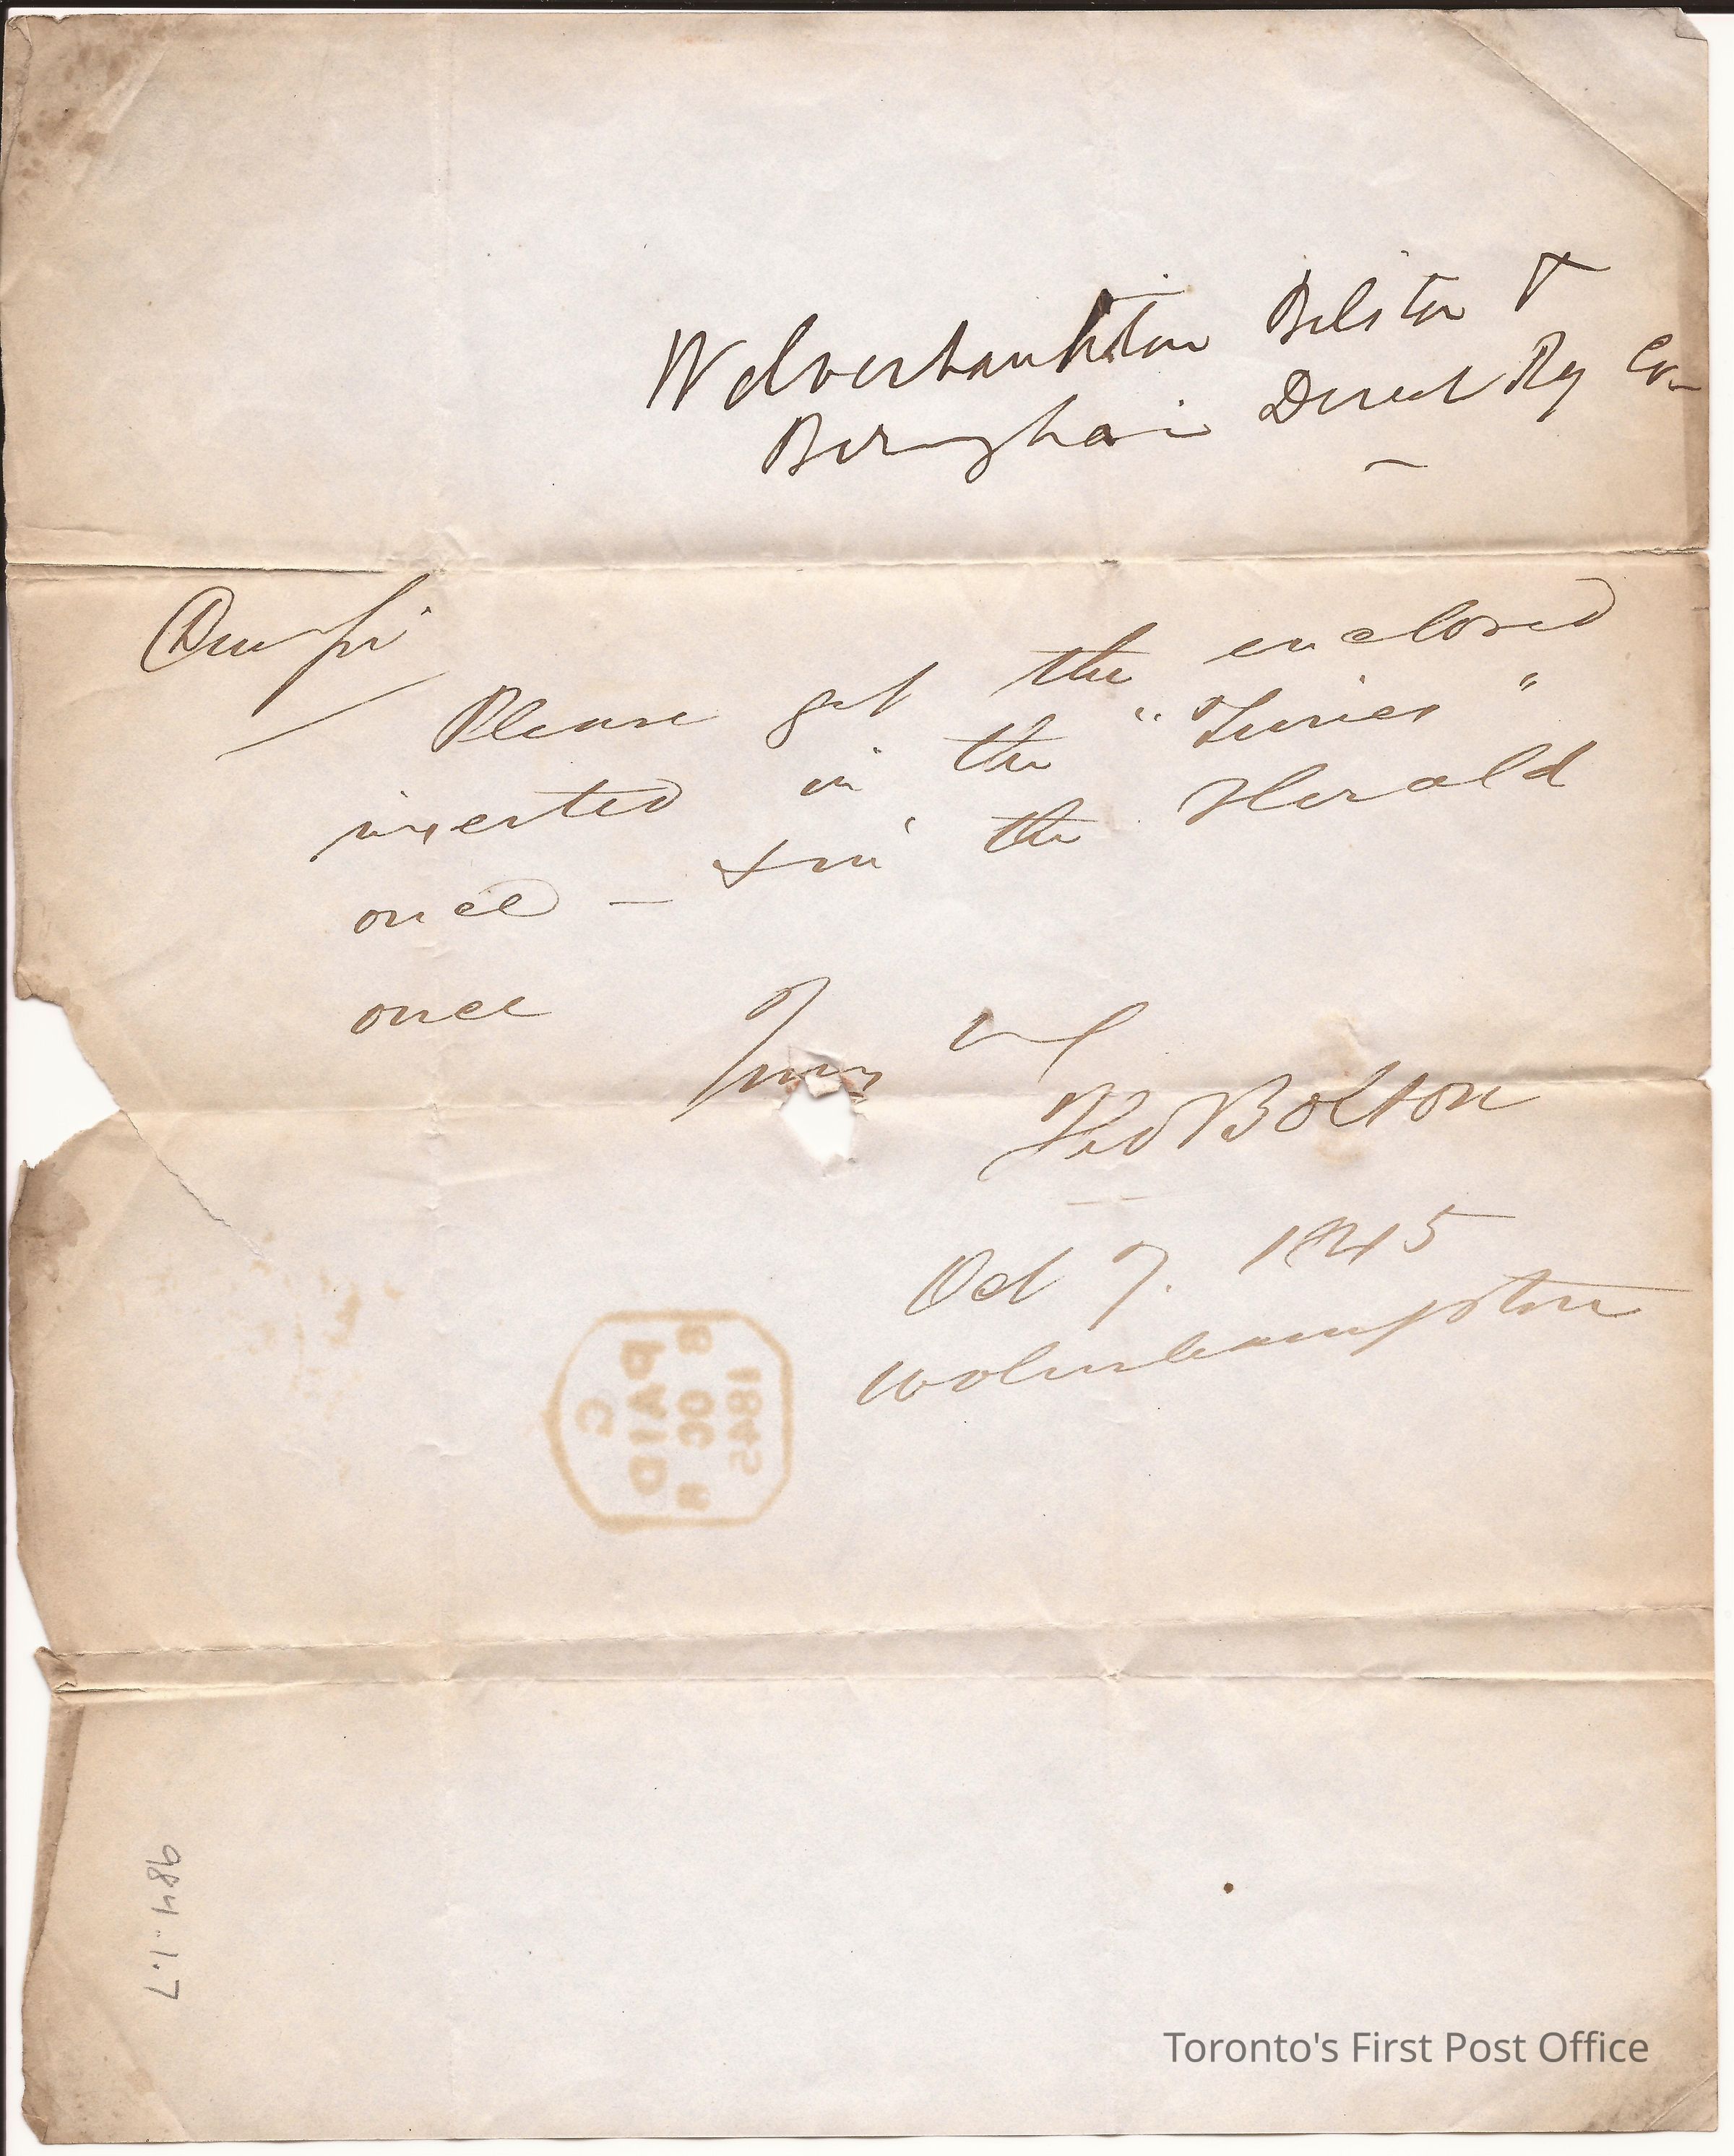 Wolverhampton Bilston &
Birmingham Direct Ry Co
Dear Sir
Please get the enclosed
inserted in the "Times"
once – & in the Herald
once
Yours
Bolton
Oct 7. 1845
Wolverhampton
C
PAID
8 OC 8
1845
984.1.7
Toronto's First Post Office